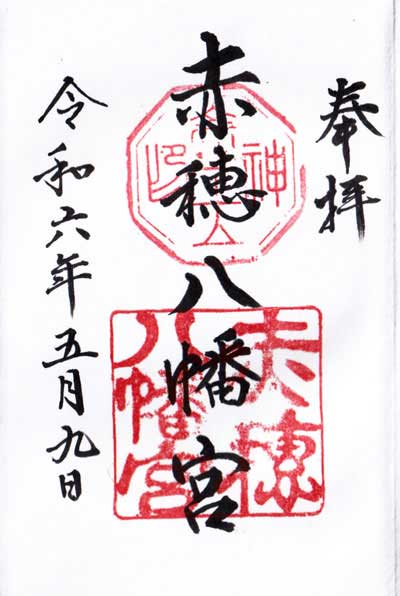 奉拝
赤穂八幡宮
令和六年五月九日
赤穂
八幡宮